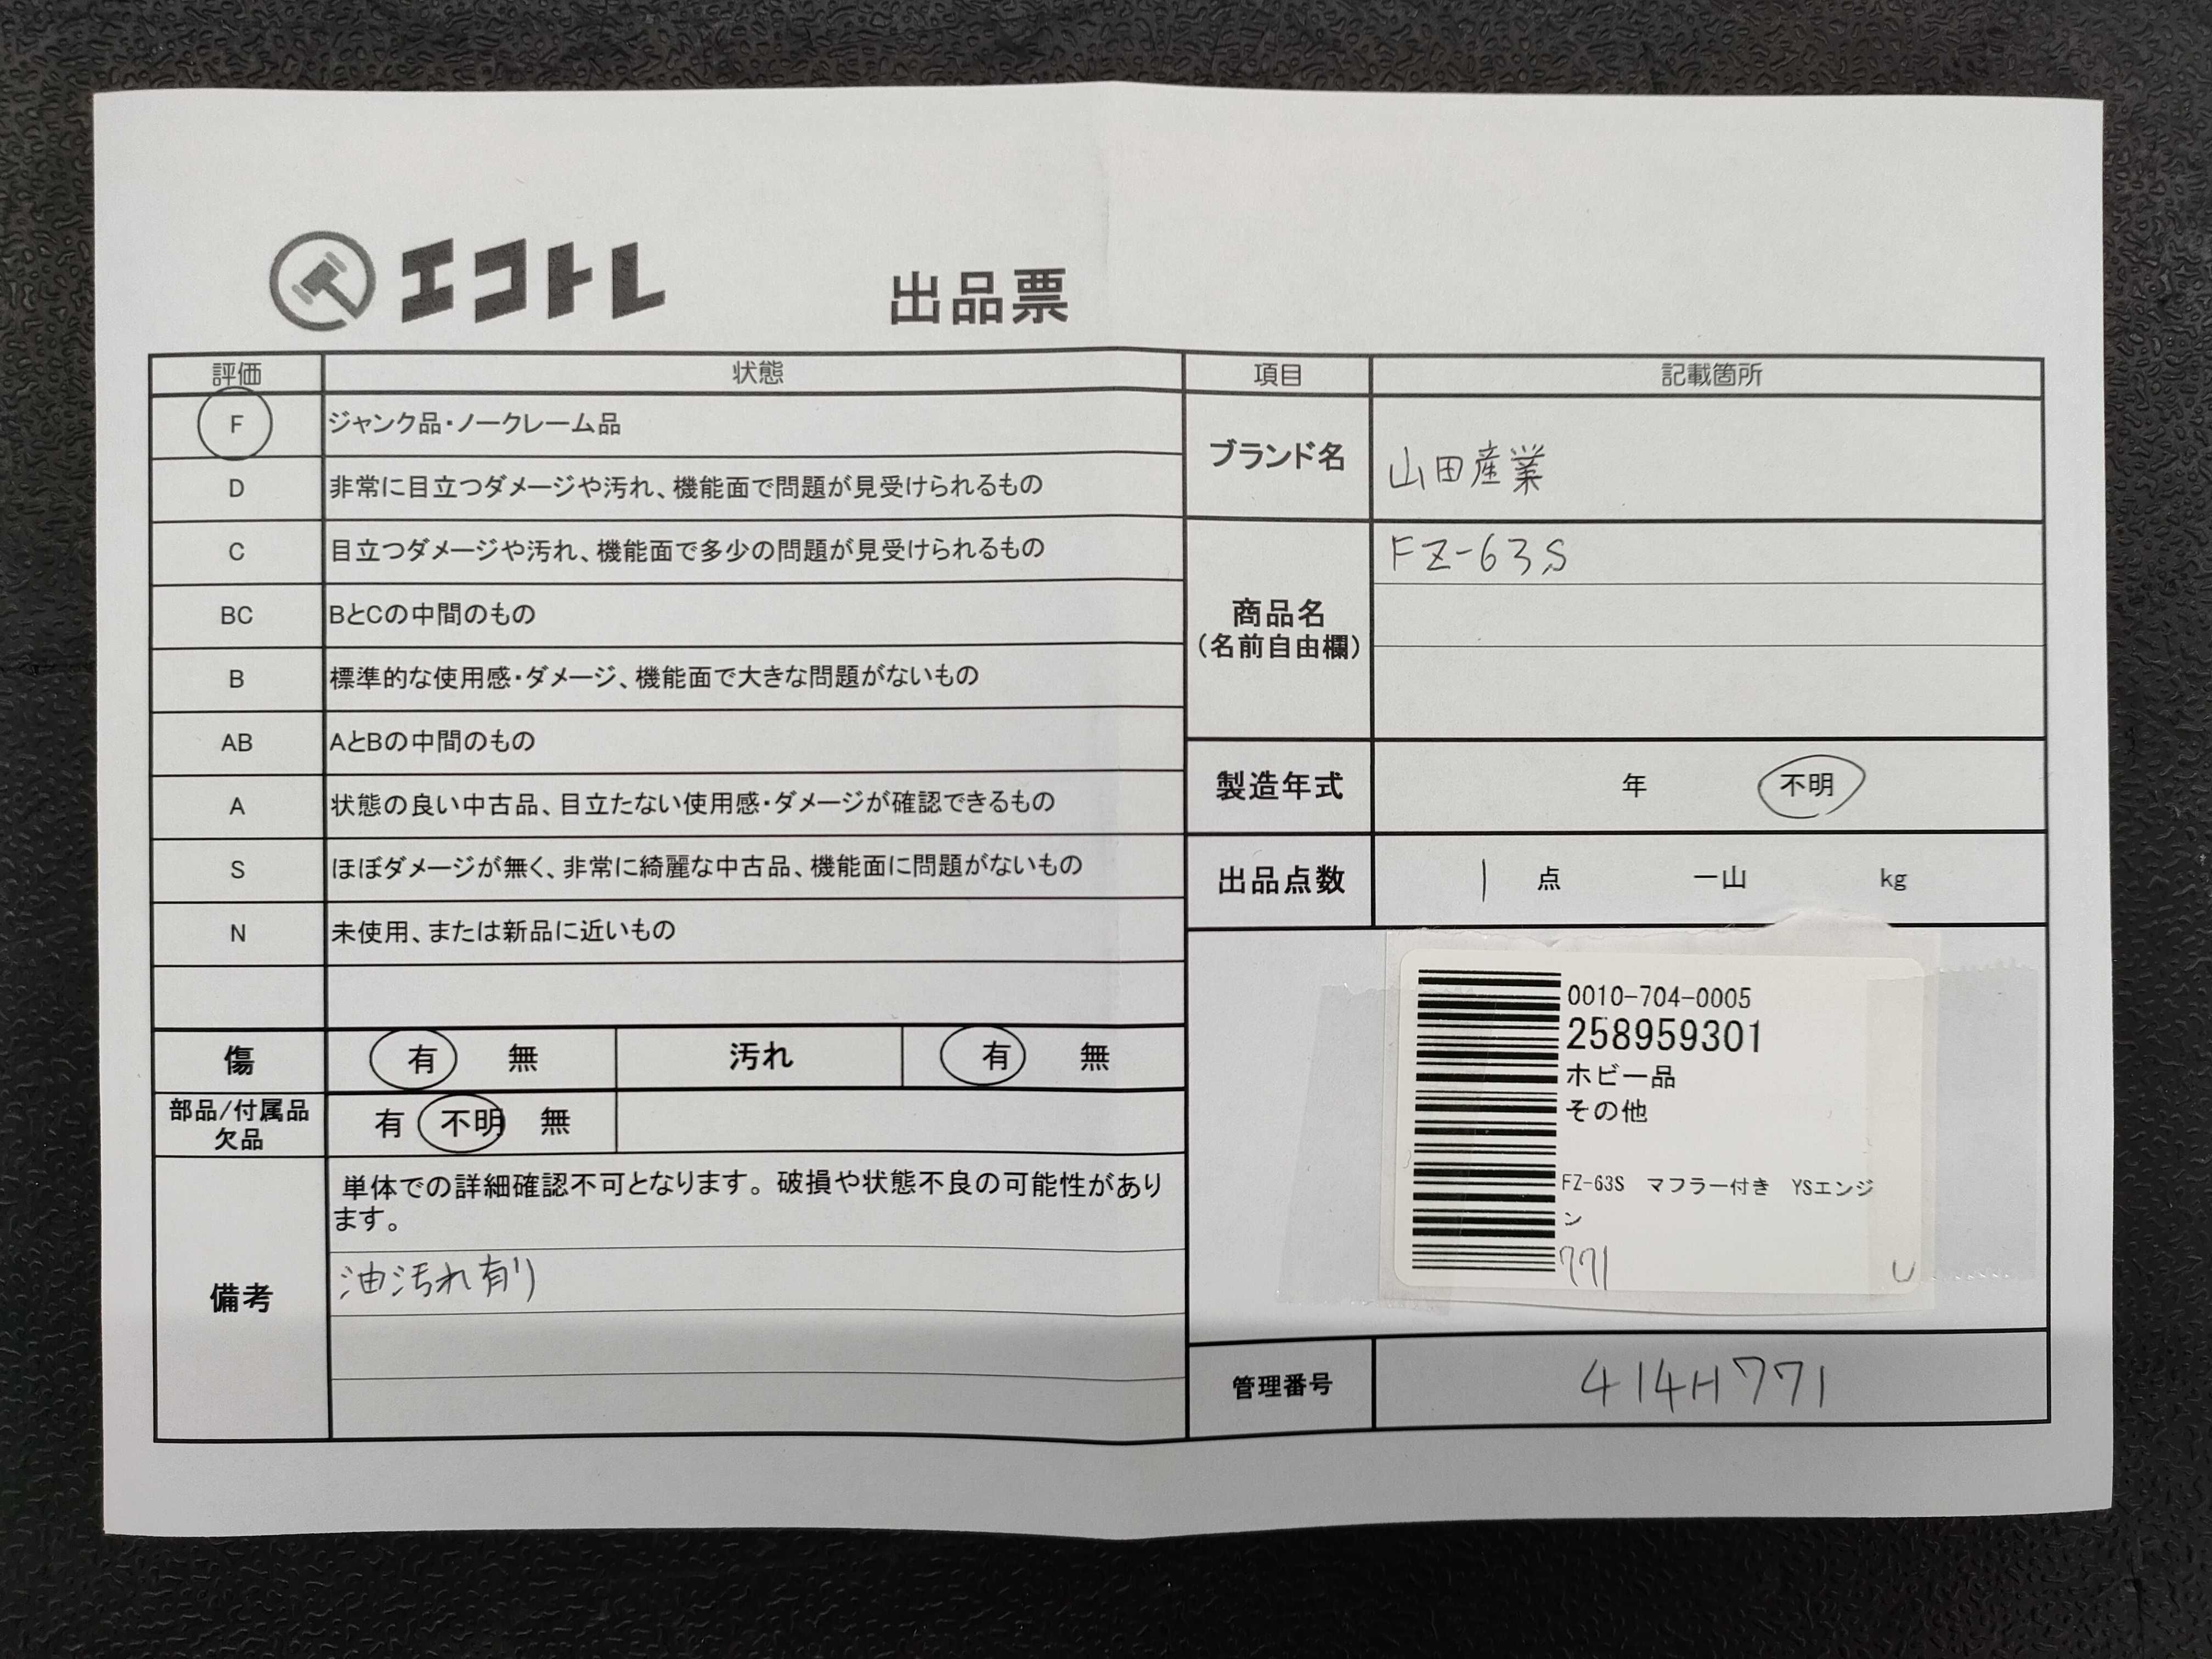 エコトレ
出品票
評価 状態
F ジャンク品・ノークレーム品
D 非常に目立つダメージや汚れ、機能面で問題が見受けられるもの
C 目立つダメージや汚れ、機能面で多少の問題が見受けられるもの
BC BとCの中間のもの
B 標準的な使用感・ダメージ、機能面で大きな問題がないもの
AB AとBの中間のもの
A 状態の良い中古品、目立たない使用感・ダメージが確認できるもの
S ほぼダメージが無く、非常に綺麗な中古品、機能面に問題がないもの
N 未使用、または新品に近いもの
傷 有 無 汚れ 有 無
部品/付属品
欠品
有 不明 無
備考
単体での詳細確認不可となります。破損や状態不良の可能性があり
ます。
油汚れ有り
項目 記載箇所
ブランド名 山田産業
商品名
(名前自由欄)
FZ-63S
製造年式 年 不明
出品点数 1 点 一山 kg
0010-704-0005
258959301
ホビー品
その他
FZ-63S マフラー付き YSエンジ
ン
771 U
管理番号 414H771